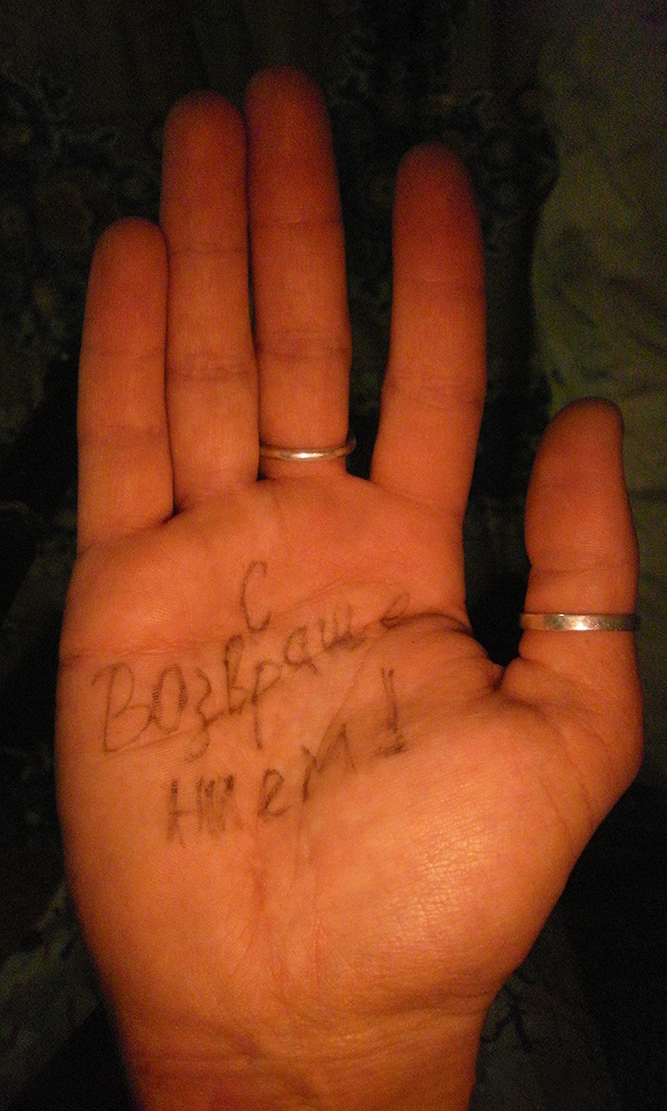 С
Возвраще
нием!